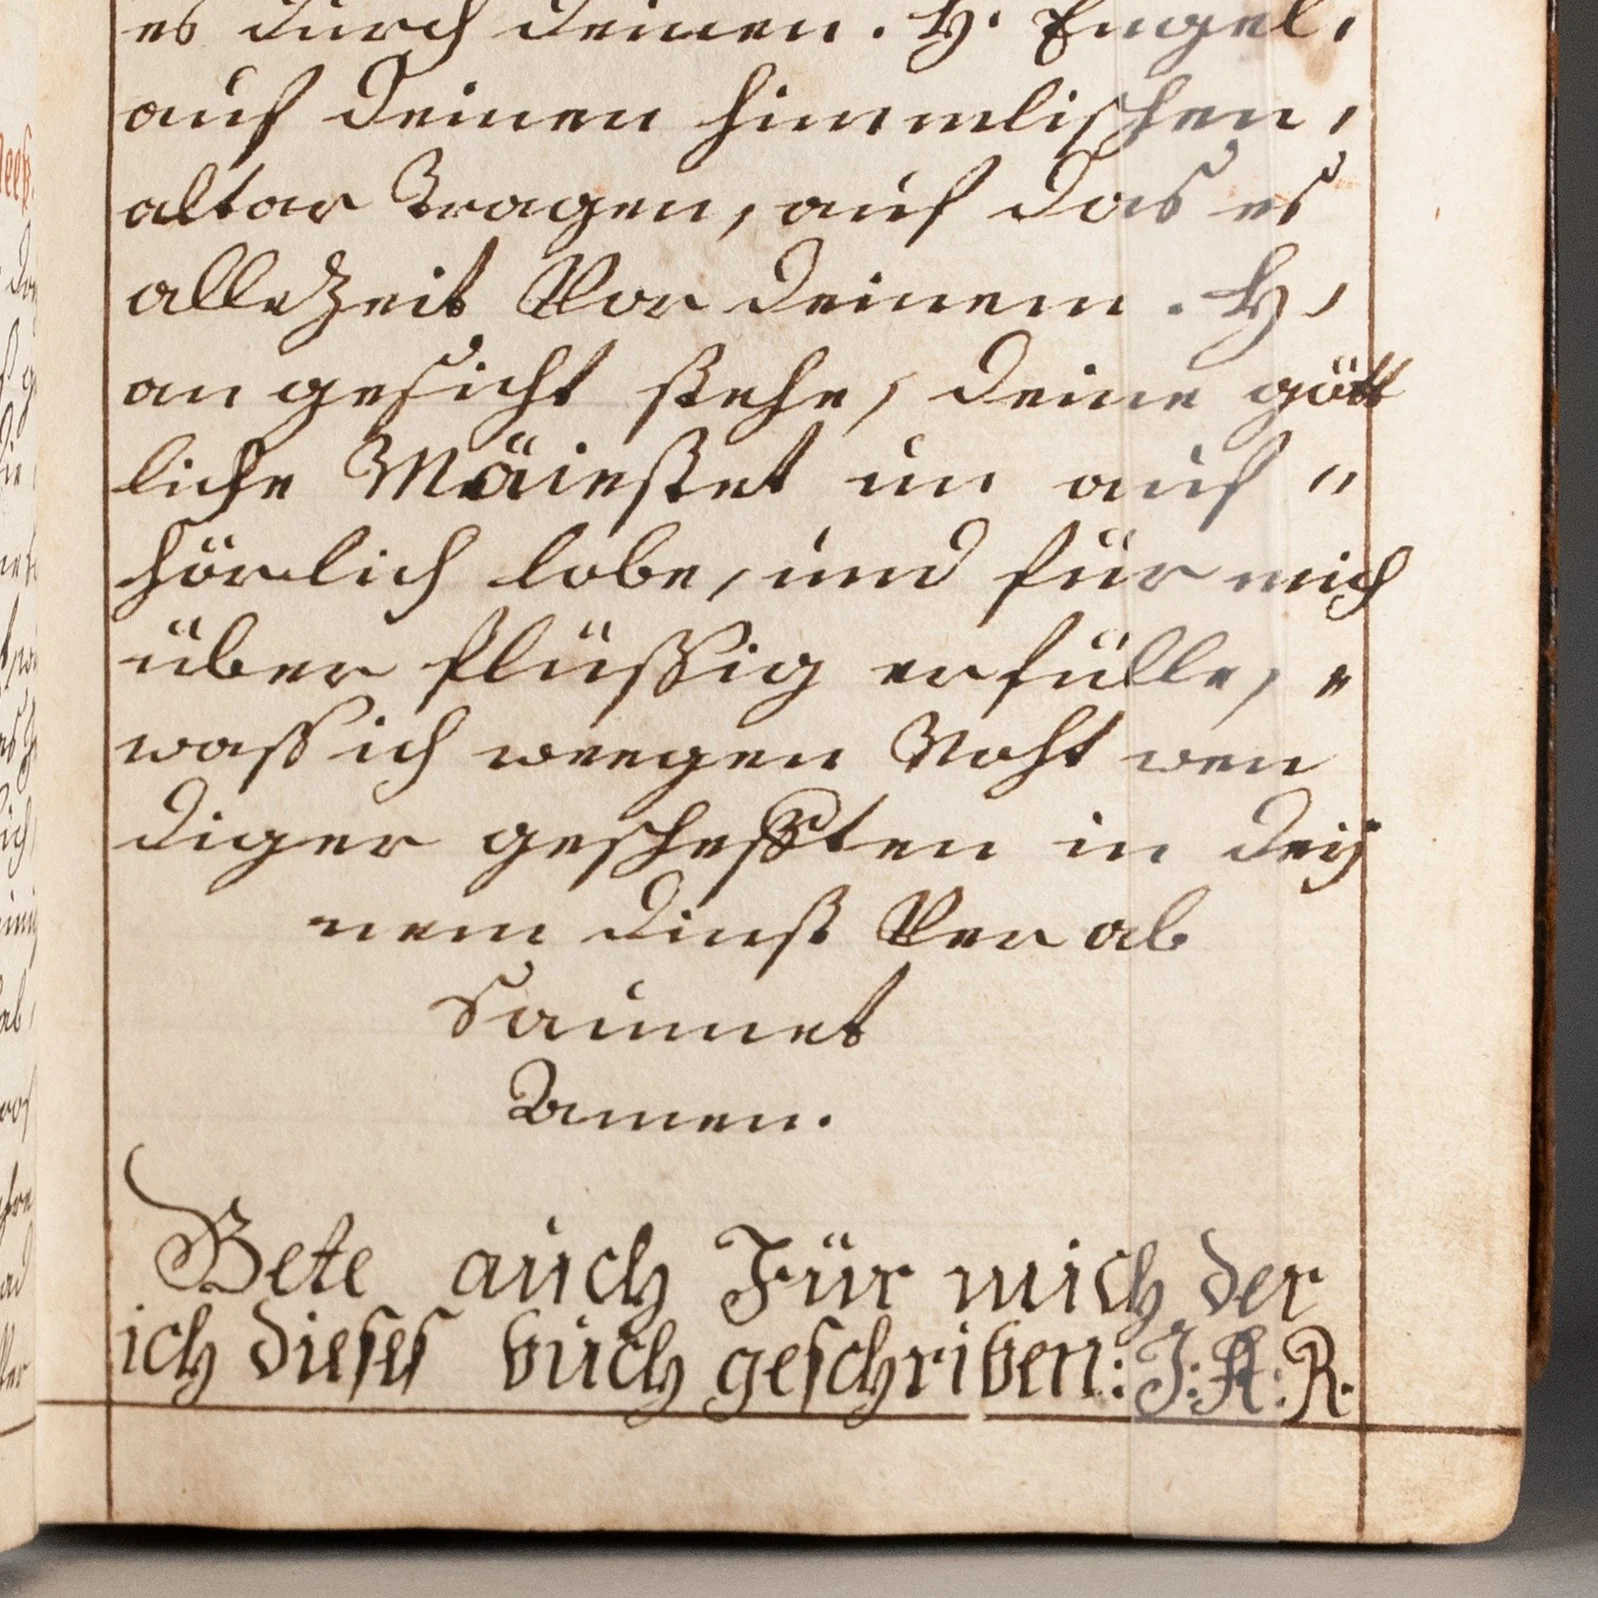 es durch deinen. H. Engel,
auf deinen himmlischen,
altar Tragen, auf das es
allezeit Vor deinem. H,
an gesicht stehe, deine gött
liche Mäiestet un auf "
hörlich lobe, und für mich
über flüssig erfülle, "
wass ich weegen Noht wen
diger geschefften in dey
nem dinst Ver ab
Saumet
Amen.
Bete auch Für mich der
ich dieses buch geschriben: J: A: R.